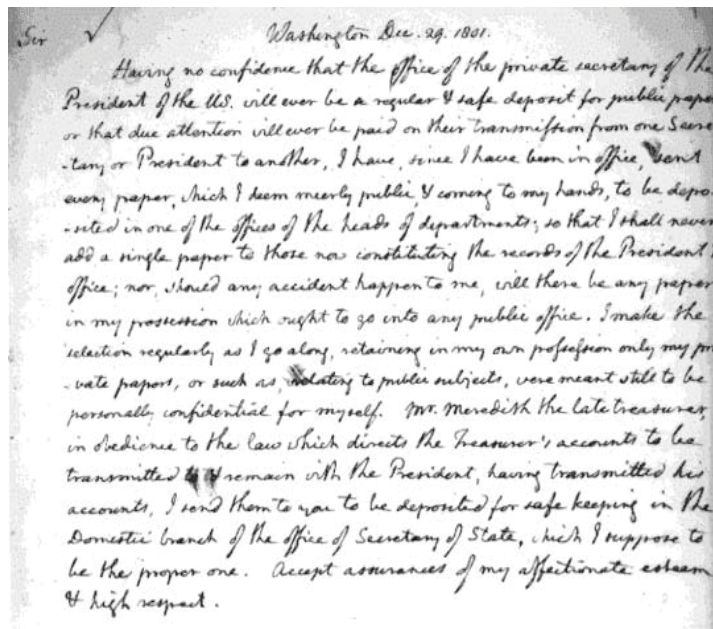 Sir
Washington Dec. 29. 1801.
Having no confidence that the office of the private secretary of the
President of the U.S. will ever be a regular & safe deposit for public paper
or that due attention will ever be paid on their transmission from one Secre
-tary or President to another, I have, since I have been in office, sent
every paper, which I deem meerly public, & coming to my hands, to be depo-
-sited in one of the offices of the heads of departments; so that I shall never
add a single paper to those now constituting the records of the President
office; nor, should any accident happen to me, will there be any paper
in my possession which ought to go into any public office. I make the
selection regularly as I go along, retaining in my own possession only my pri
-vate papers, or such as, relating to public subjects, were meant still to be
personally confidential for myself. Mr. Meredith the late treasurer,
in obedience to the law which directs the Treasurer's accounts to be
transmitted to & remain with the President, having transmitted his
accounts, I send them to you to be deposited for safe keeping in the
Domestic branch of the office of Secretary of State, which I suppose to
be the proper one. Accept assurances of my affectionate esteem
& high respect.